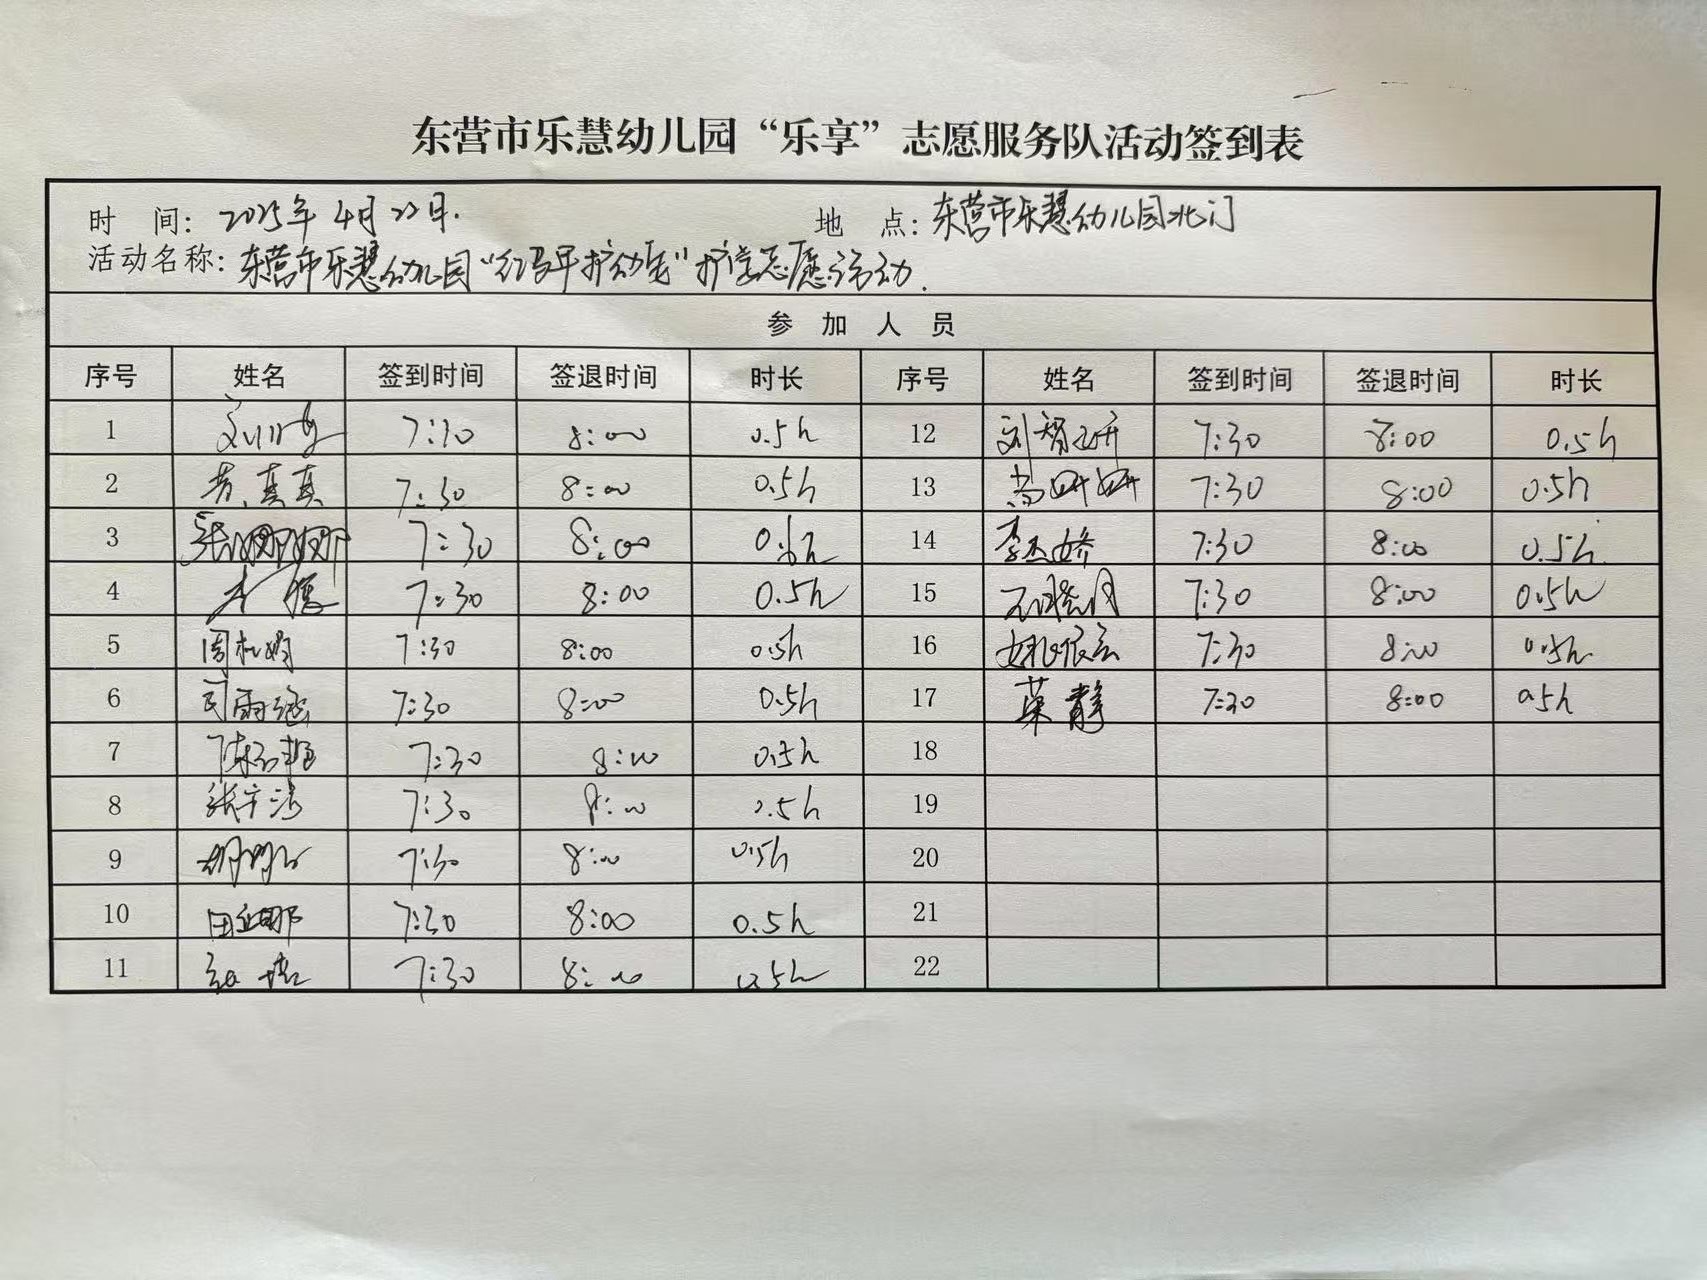 东营市乐慧幼儿园“乐享”志愿服务队活动签到表
时 间：2025年4月22日. 地 点：东营市乐慧幼儿园北门
活动名称：东营市乐慧幼儿园“红马甲护幼岗”护学志愿活动.
参 加 人 员
序号 姓名 签到时间 签退时间 时长 序号 姓名 签到时间 签退时间 时长
1 7:30 8:00 0.5h 12 刘智妍 7:30 8:00 0.5h
2 真真 7:30 8:00 0.5h 13 尚妍妍 7:30 8:00 0.5h
3 张娜娜 7:30 8:00 0.5h 14 李杰娇 7:30 8:00 0.5h
4 7:30 8:00 0.5h 15 石晓月 7:30 8:00 0.5h
5 周 娟 7:30 8:00 0.5h 16 姚依云 7:30 8:00 0.5h
6 司雨涵 7:30 8:00 0.5h 17 荣静 7:30 8:00 0.5h
7 陈 7:30 8:00 0.5h 18
8 张 洁 7:30 8:00 0.5h 19
9 胡 7:30 8:00 0.5h 20
10 田 娜 7:30 8:00 0.5h 21
11 7:30 8:00 0.5h 22